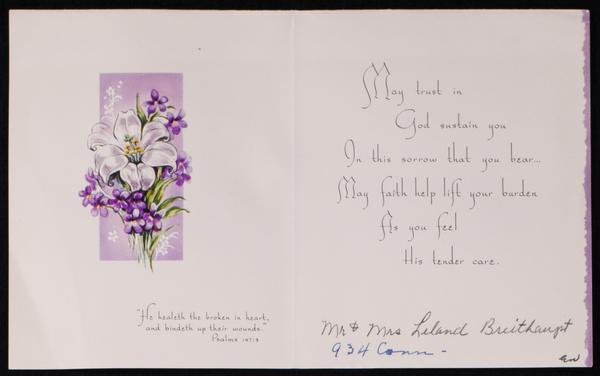 "He healeth the broken in heart,
and bindeth up their wounds."
Psalms 147:3
May trust in
God sustain you
In this sorrow that you bear...
May faith help lift your burden
As you feel
His tender care.
Mr & Mrs Leland Breithaupt
934 Conn -